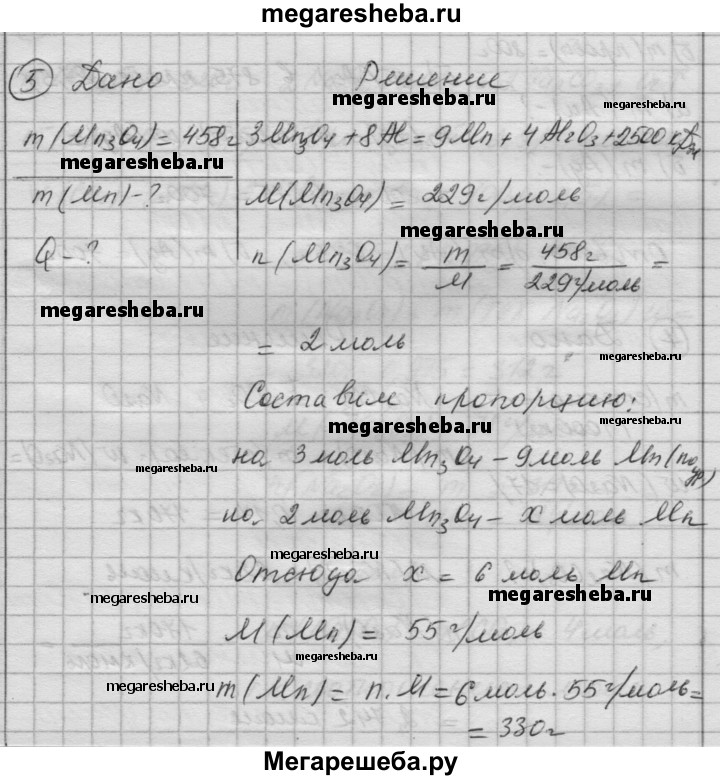 megaresheba.ru
5 Дано Решение
megaresheba.ru
m(Mn₃O₄)=458г 3Mn₃O₄+8Al=9Mn+4Al₂O₃+2500кДж
megaresheba.ru
m(Mn)-? M(Mn₃O₄)=229г/моль
megaresheba.ru
Q-? n(Mn₃O₄)= m/M = 458г/229г/моль =
megaresheba.ru
= 2 моль
megaresheba.ru
Составим пропорцию:
megaresheba.ru
на 3 моль Mn₃O₄ - 9 моль Mn (по ур)
megaresheba.ru
на 2 моль Mn₃O₄ - x моль Mn
megaresheba.ru
Отсюда x = 6 моль Mn
megaresheba.ru
megaresheba.ru
M(Mn) = 55 г/моль
megaresheba.ru
m(Mn) = n.M = 6 моль · 55г/моль =
megaresheba.ru
= 330г
Мегарешеба.ру